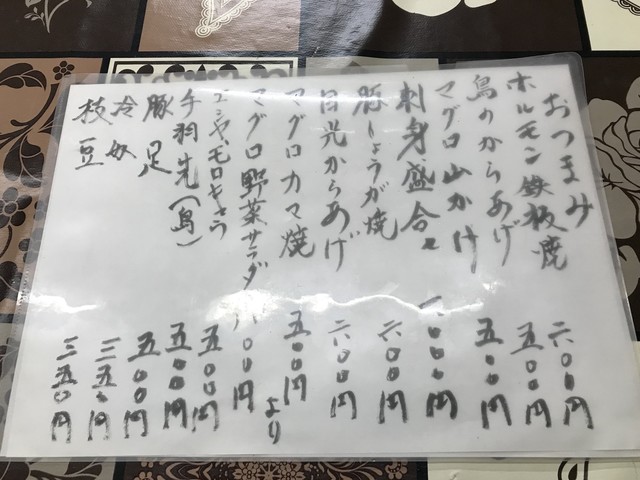 おつまみ
ホルモン鉄板焼 六〇〇円
鳥のからあげ 五〇〇円
マグロ山かけ 五〇〇円
刺身盛合せ 一、〇〇〇円
豚しょうが焼 六〇〇円
目光からあげ 六〇〇円
マグロカマ焼 五〇〇円より
マグロ野菜サラダ 八〇〇円
エシャ、モロキュウ 五〇〇円
手羽先(鳥) 五〇〇円
豚足 五〇〇円
冷奴 三五〇円
枝豆 三五〇円